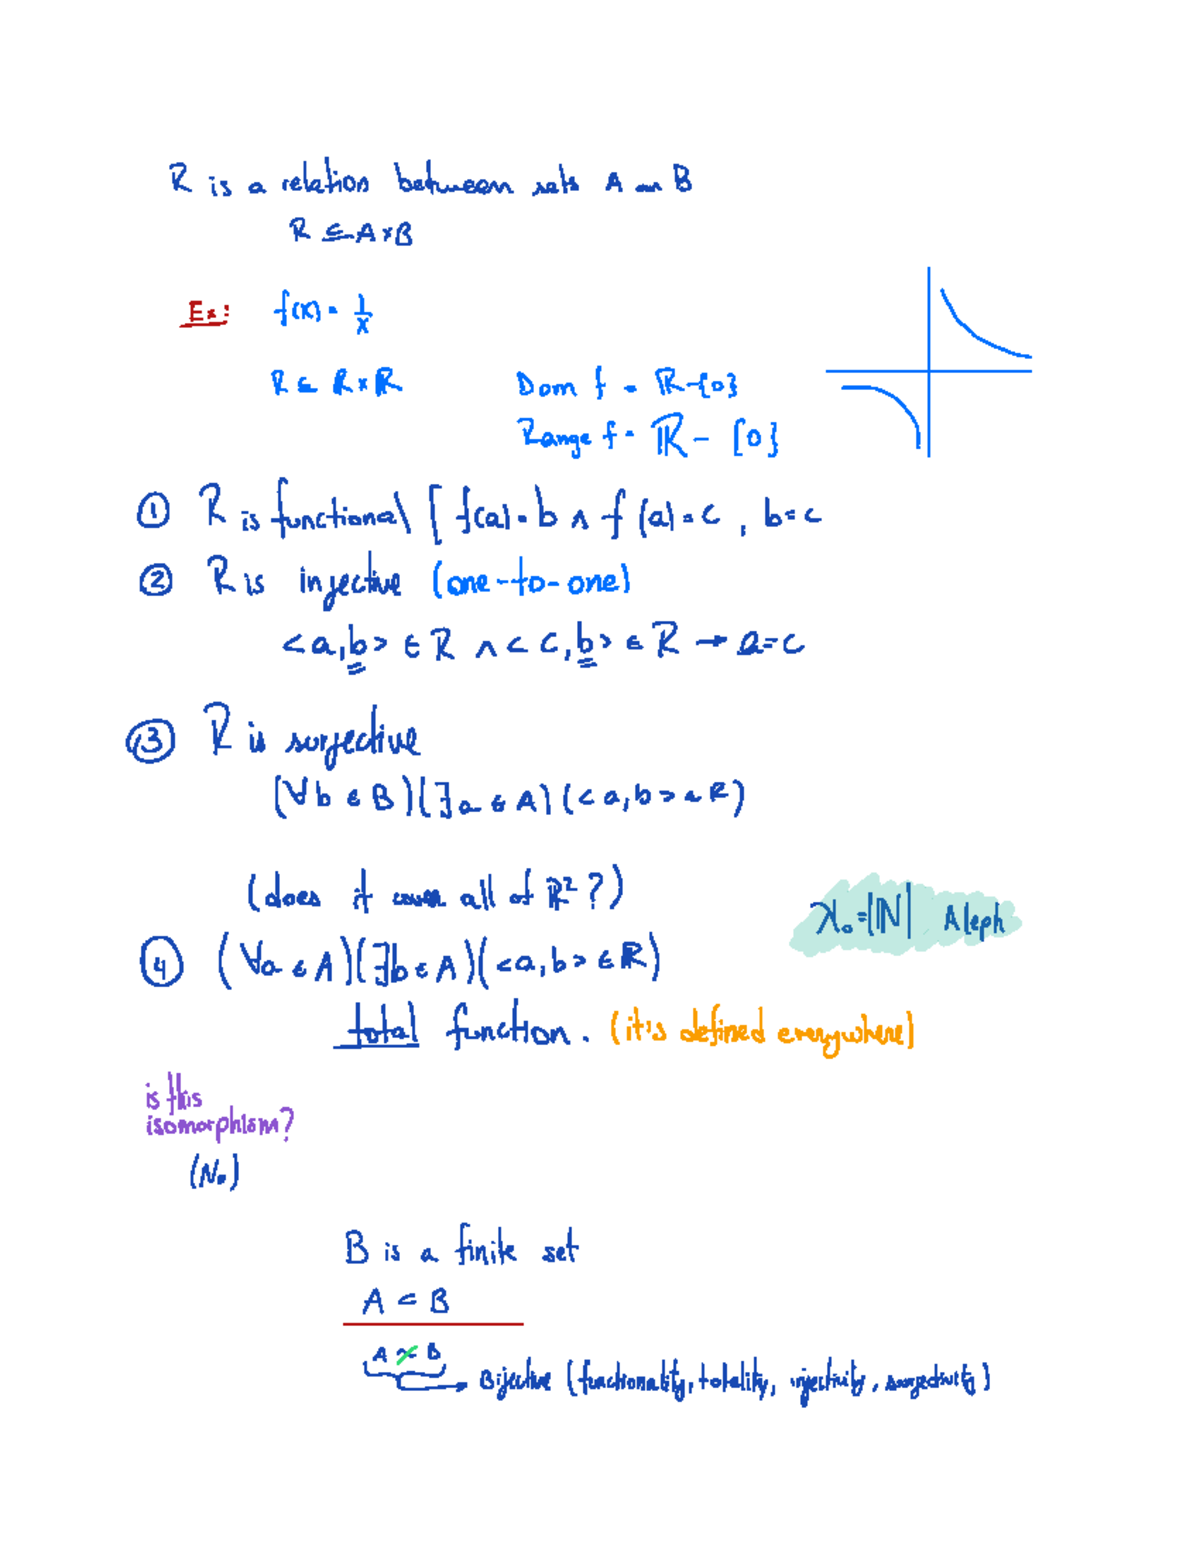 R is a relation between sets A and B
R ⊆ A×B
Ex: f(x) = 1/x
R ⊆ R×R
Dom f = ℝ-{0}
Range f = ℝ - {0}
① R is functional [ f(a) = b ∧ f(a) = c , b=c
② R is injective (one-to-one)
<a,b> ∈ R ∧ < c,b> ∈ R → a=c
③ R is surjective
(∀b ∈ B)(∃a ∈ A)(<a,b> ∈ R)
(does it cover all of ℝ²?)
λ₀=|ℕ| Aleph
④ (∀a ∈ A)(∃b ∈ A)(<a,b> ∈ R)
total function. (it's defined everywhere)
is this
isomorphism?
(No)
B is a finite set
A ⊂ B
A ≁ B
→ Bijective (functionality, totality, injectivity, surjectivity)